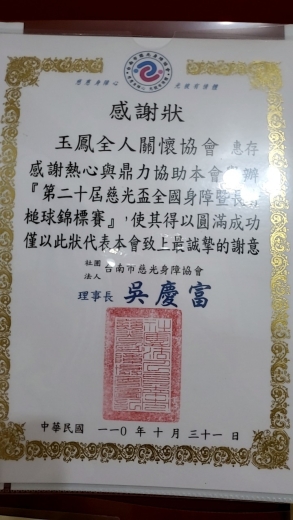 感謝狀
玉鳳全人關懷協會 惠存
感謝熱心與鼎力協助本會
『第二十屆慈光盃全國身障暨長
槌球錦標賽』,使其得以圓滿成功
僅以此狀代表本會致上最誠摯的謝意
社團法人 台南市慈光身障協會
理事長 吳慶富
中華民國 一一0 年 十 月 三十一 日